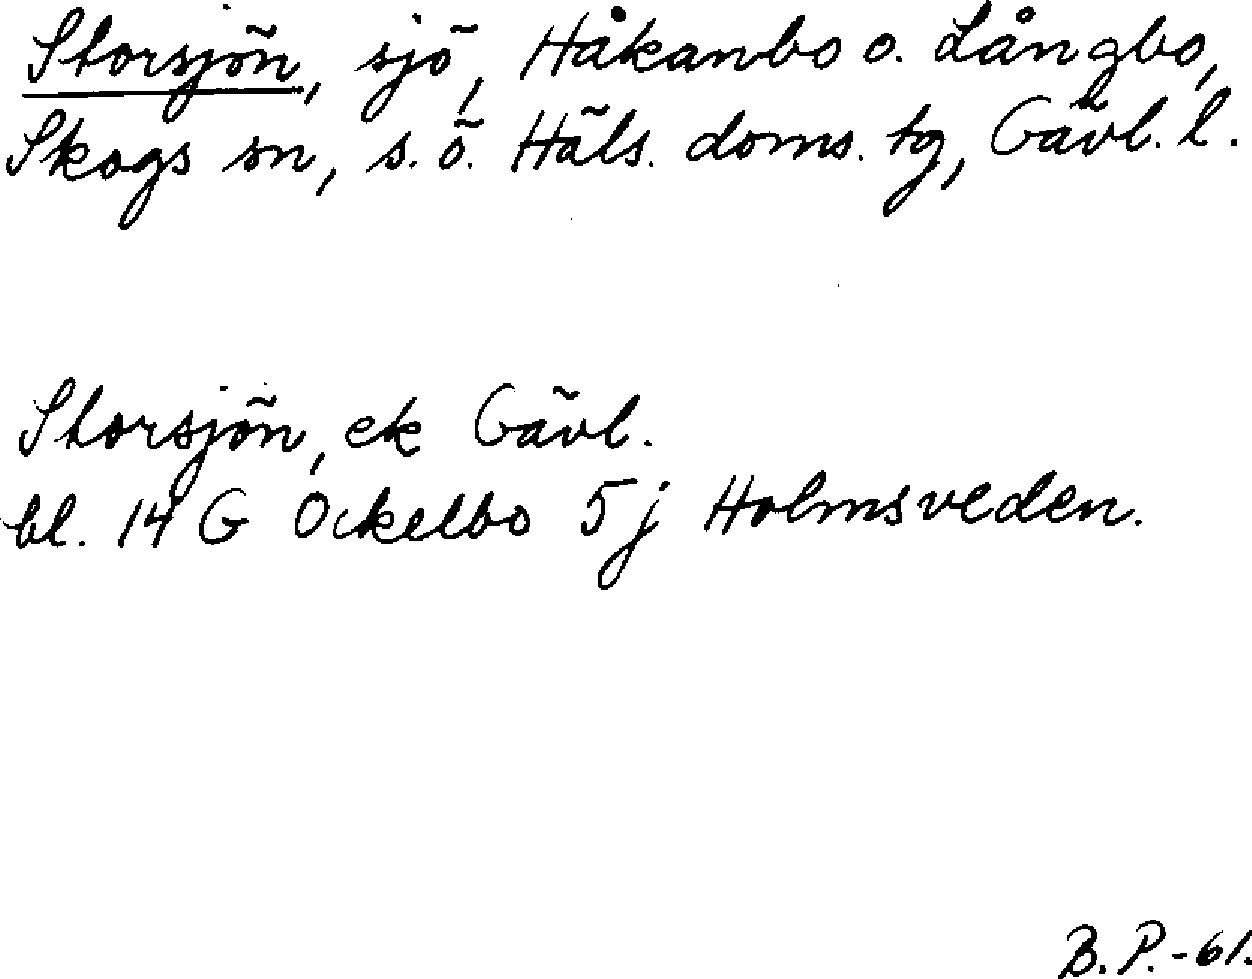 Storsjön, sjö, Håkanbo o. Långbo,
Skogs sn, s.ö. Häls. doms. tg, Gävl. l.
Storsjön, ek Gävl.
bl. 14 G Ockelbo 5 j Holmsveden.
B. P. -61.